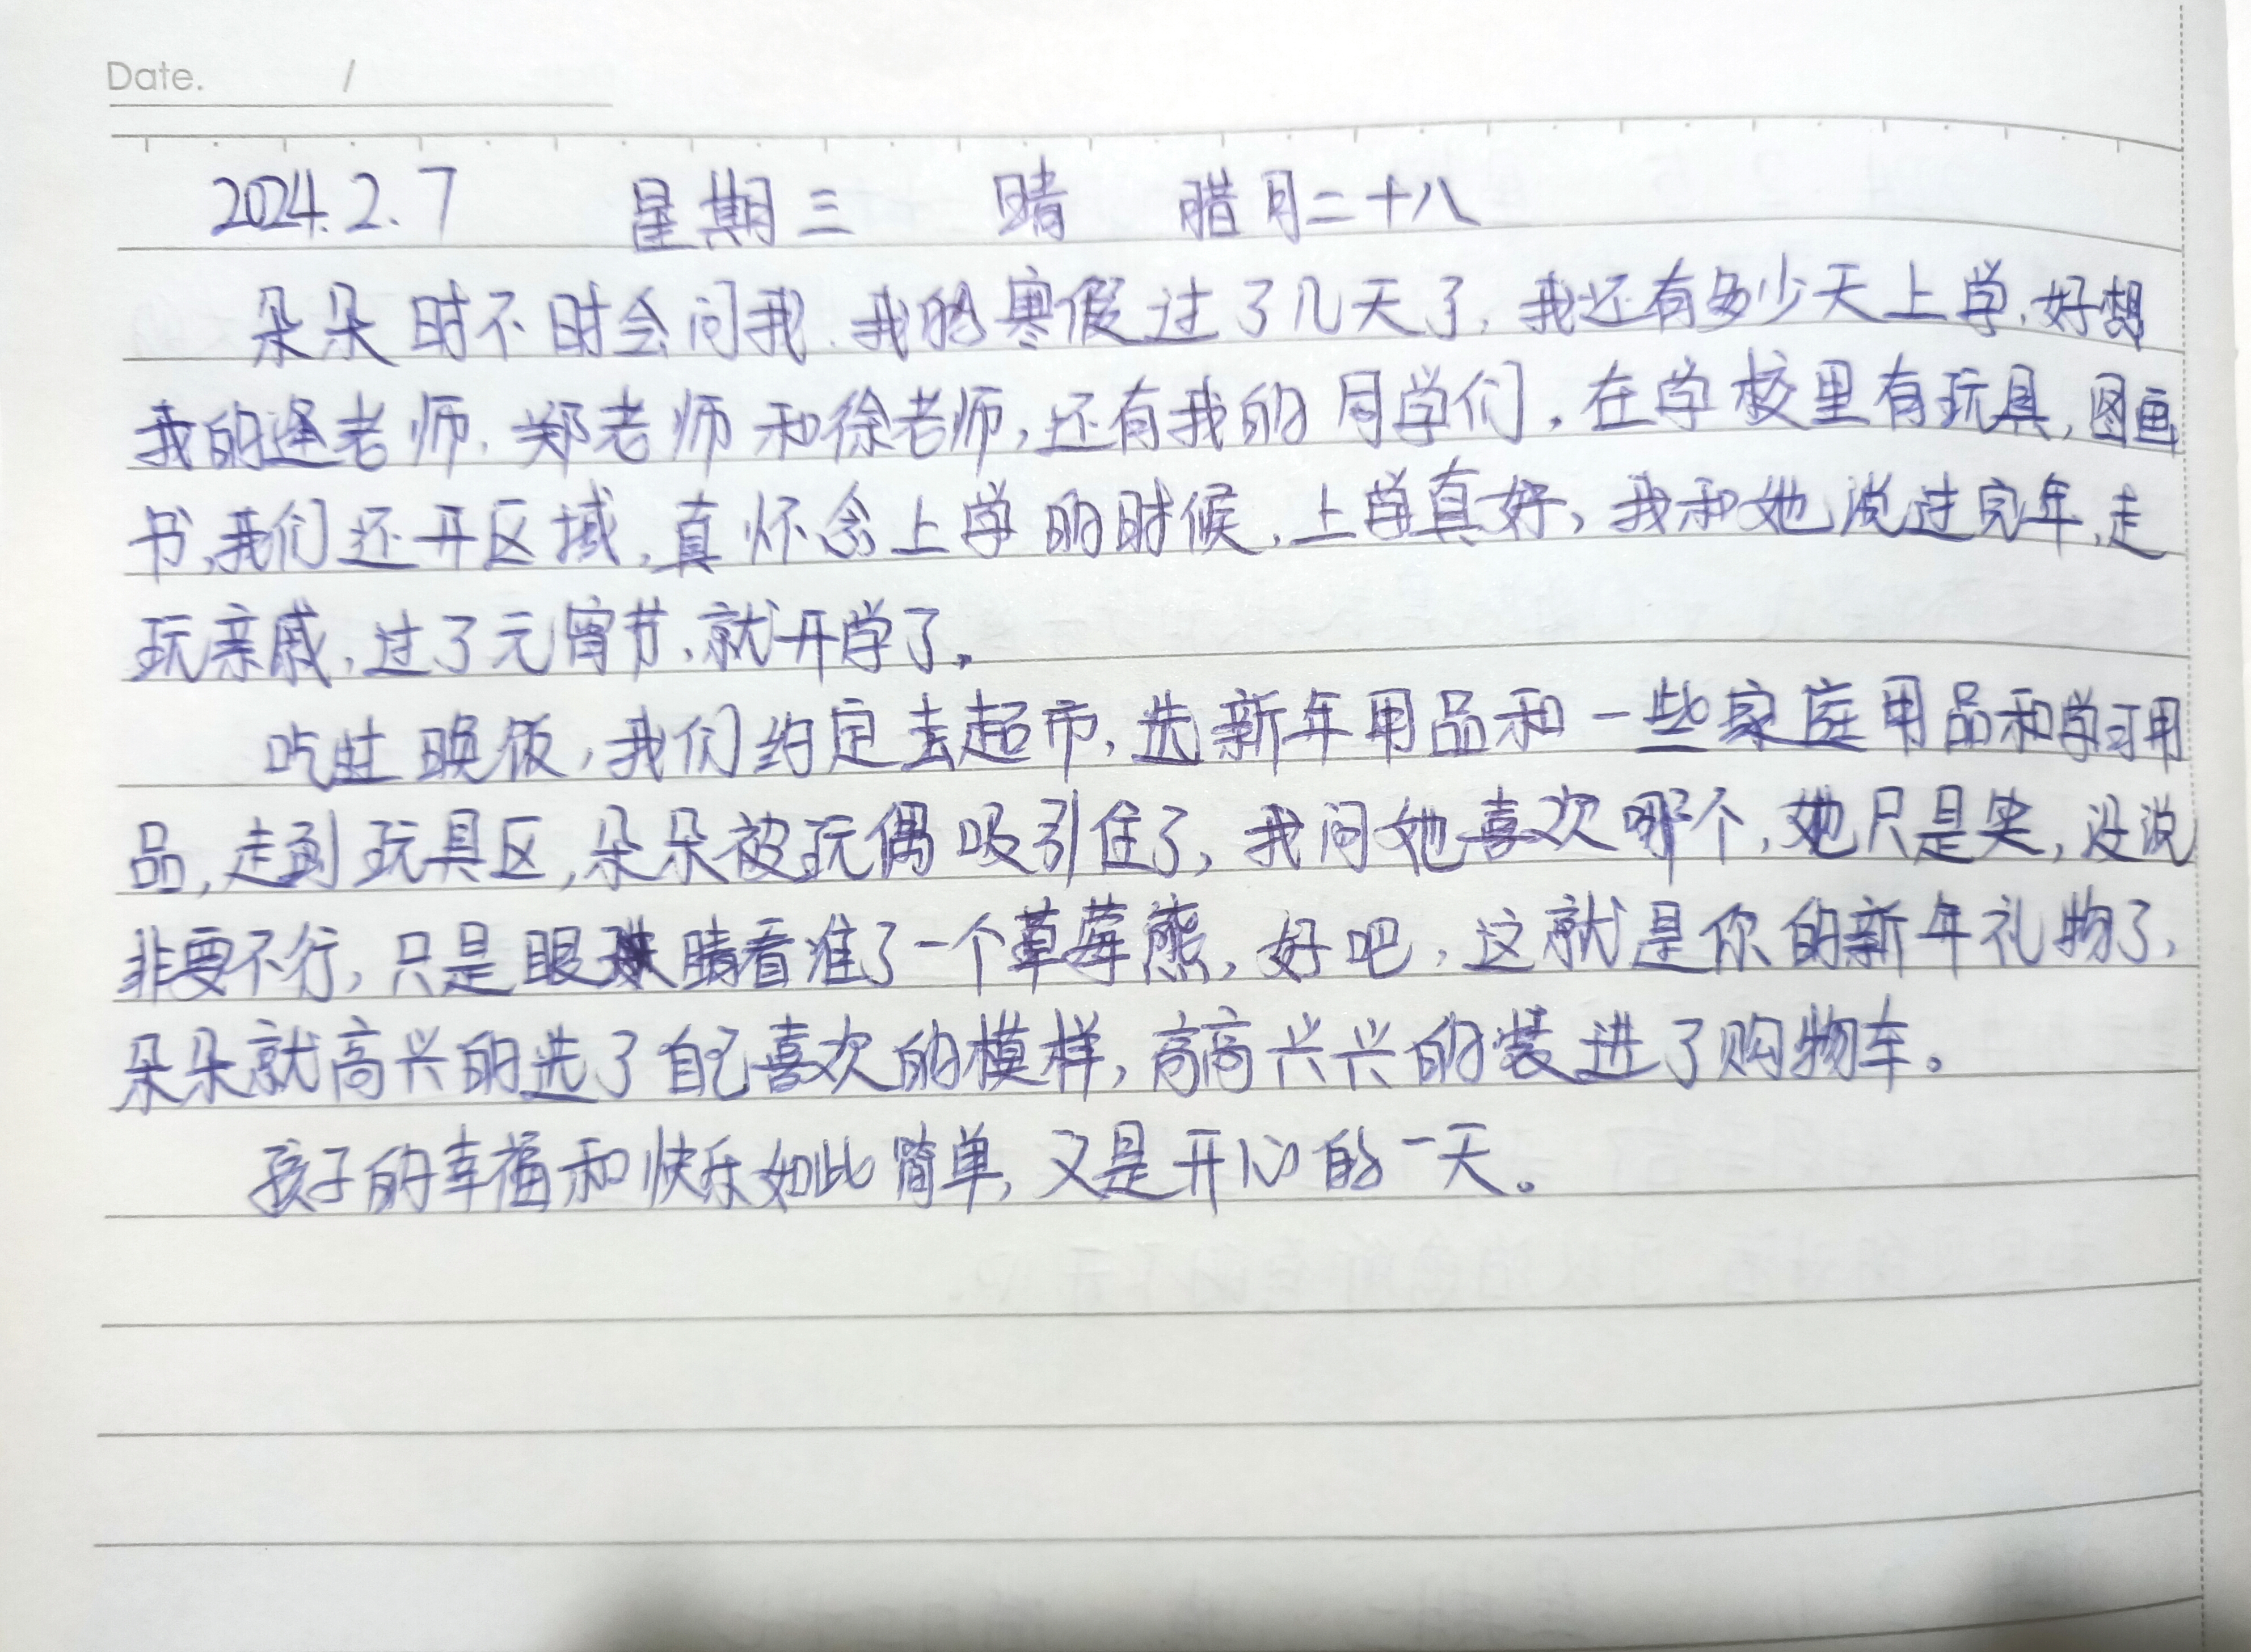 Date. /
2024.2.7 星期三 晴 腊月二十八
朵朵时不时会问我,我的寒假过了几天了,我还有多少天上学,好想
我的逄老师,郑老师和徐老师,还有我的同学们,在学校里有玩具,图画
书,我们还开区域,真怀念上学的时候,上学真好,我和她说过完年,走
玩亲戚,过了元宵节,就开学了。
吃过晚饭,我们约定去超市,选新年用品和一些家庭用品和学习用
品,走到玩具区,朵朵被玩偶吸引住了,我问她喜欢哪个,她只是笑,没说
非要不行,只是眼睛看准了一个草莓熊,好吧,这就是你的新年礼物了,
朵朵就高兴的选了自己喜欢的模样,高高兴兴的装进了购物车。
孩子的幸福和快乐如此简单,又是开心的一天。